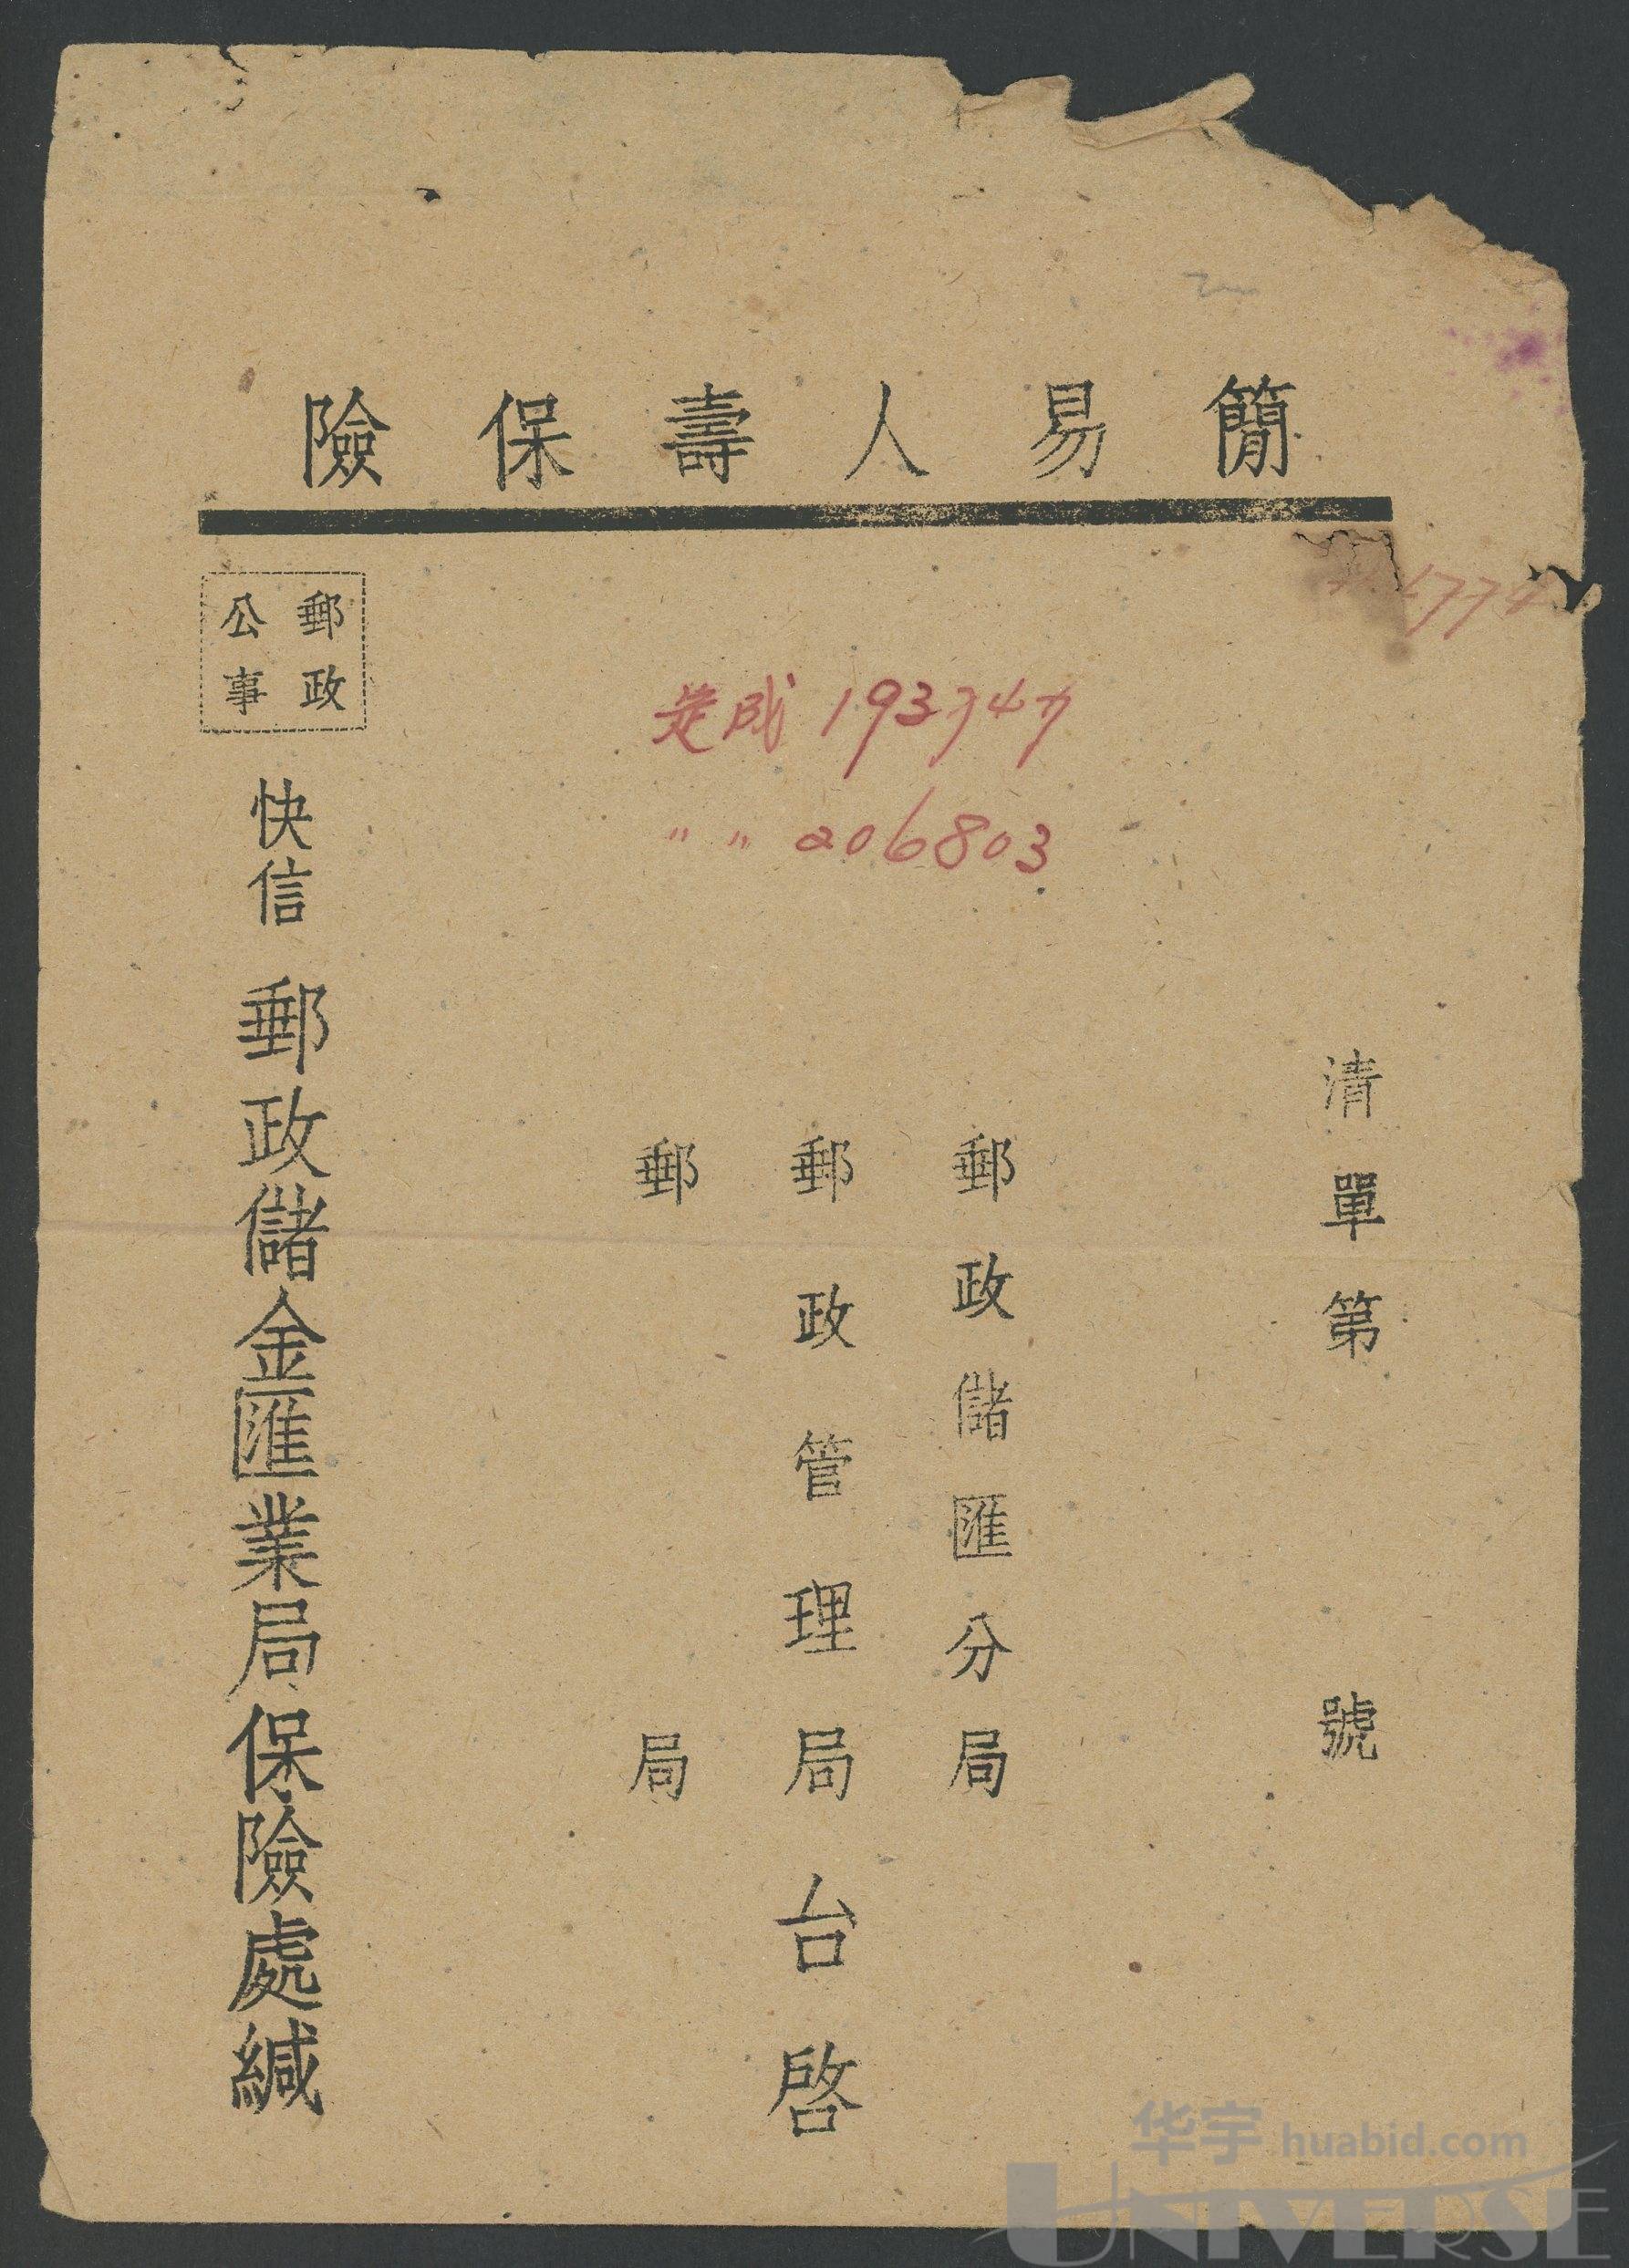 簡易人壽保險
清單第　號
郵政儲匯分局
郵政管理局台啓
郵　局
193747
〃 〃 206803
郵政
公事
快信 郵政儲金匯業局保險處緘
华宇 huabid.com
UNIVERSE